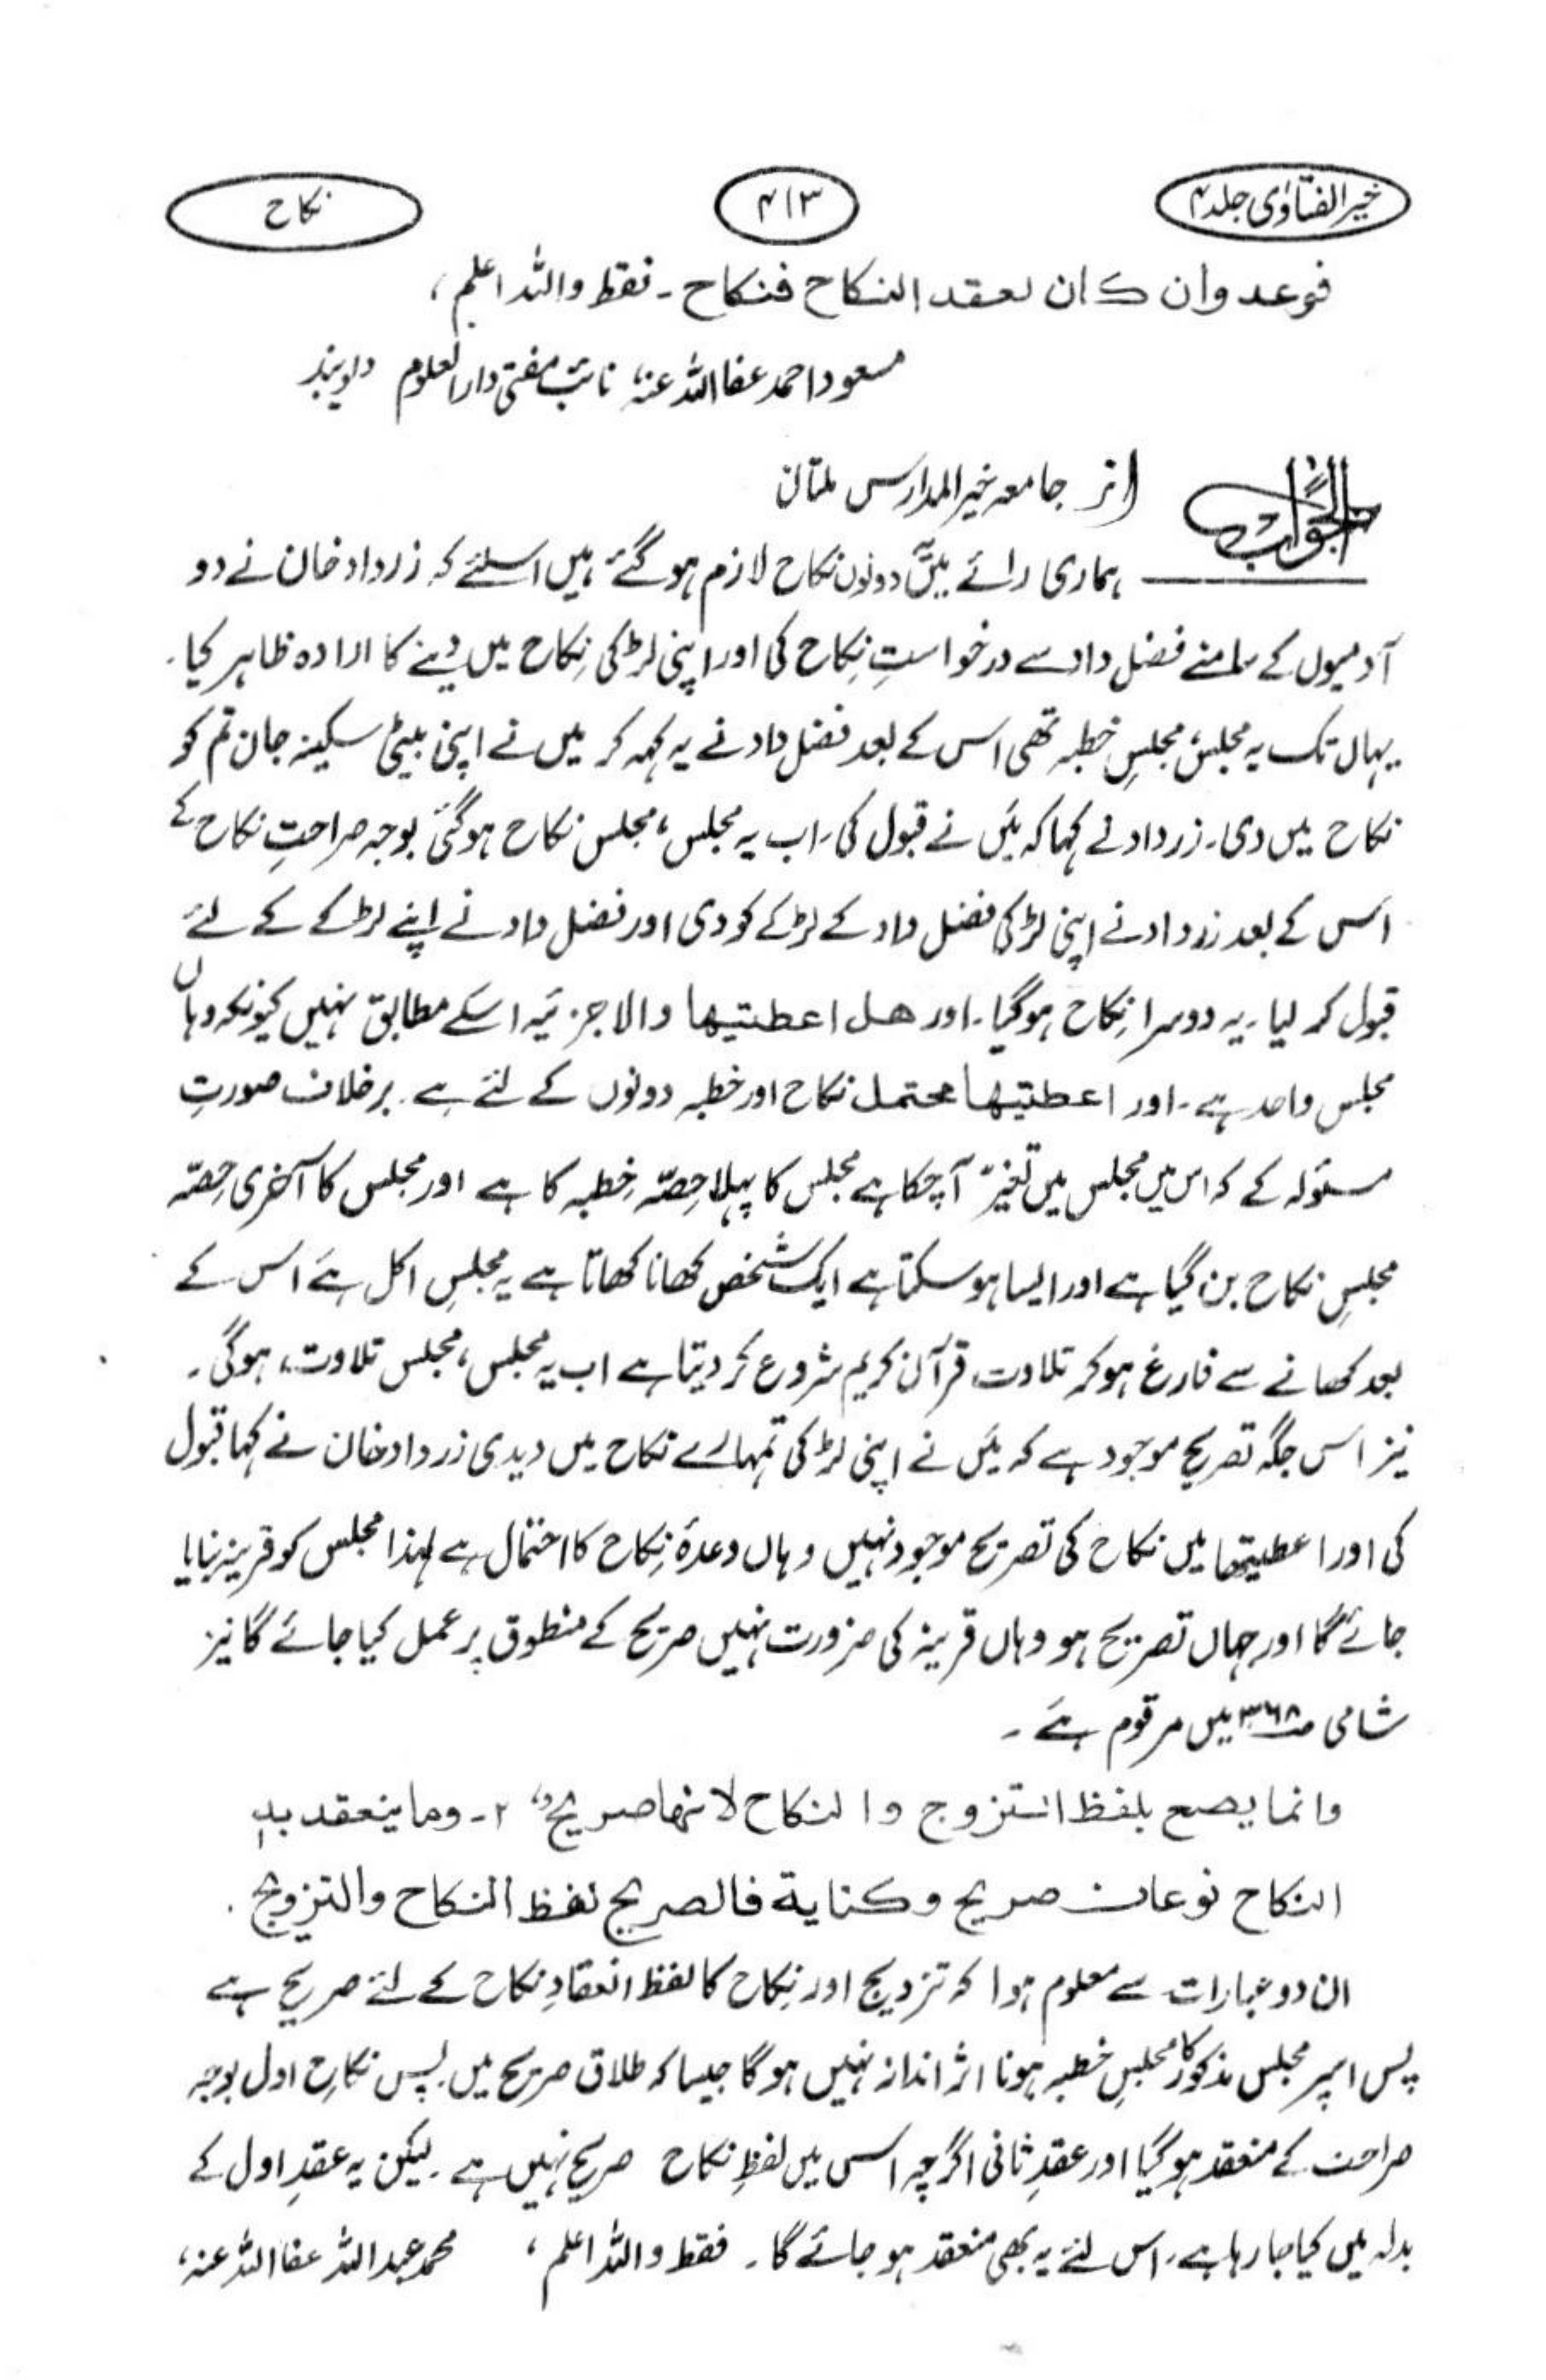 خیر الفتاوٰی جلد ۴
۴۱۳
نکاح
فوعد وان کان لعقد النکاح فنکاح ـ فقط واللہ اعلم ،
مسعود احمد عفا اللہ عنہ، نائب مفتی دارالعلوم دیوبند
الجواب
از جامعہ خیرالمدارس ملتان
ہماری رائے میں دونوں نکاح لازم ہوگئے ہیں اسلئے کہ زرداد خان نے دو
آدمیوں کے سامنے فضل داد سے درخواستِ نکاح کی اور اپنی لڑکی نِکاح میں دینے کا ارادہ ظاہر کیا۔
یہاں تک یہ مجلس، مجلسِ خطبہ تھی اس کے بعد فضل داد نے یہ کہہ کر میں نے اپنی بیٹی سکینہ جان تم کو
نکاح میں دی۔ زرداد نے کہا کہ میَں نے قبول کی۔ اب یہ مجلس، مجلس نکاح ہوگئی بوجہ صراحتِ نکاح کے
اس کے بعد زرداد نے اپنی لڑکی فضل داد کے لڑکے کو دی اور فضل داد نے اپنے لڑکے کے لئے
قبول کر لیا۔ یہ دوسرا نِکاح ہوگیا۔ اور ھل اعطیتیھا والا جزئیہ اسکے مطابق نہیں کیونکہ وہاں
مجلس واحد ہے۔ اور اعطیتیھا محتمل نکاح اور خطبہ دونوں کے لئے ہے۔ برخلاف صورتِ
مسئولہ کے کہ اس میں مجلس میں تغیّر آچکا ہے مجلس کا پہلا حِصّہ خِطبہ کا ہے اور مجلس کا آخری حِصّہ
مجلسِ نکاح بن گیا ہے اور ایسا ہوسکتا ہے ایک شخص کھانا کھاتا ہے یہ مجلسِ اکل ہے اس کے
بعد کھانے سے فارغ ہوکر تلاوت قرآن کریم شروع کر دیتا ہے اب یہ مجلس، مجلس تلاوت، ہوگی۔
نیز اس جگہ تصریح موجود ہے کہ میَں نے اپنی لڑکی تمہارے نکاح میں دیدی زرداد خان نے کہا قبول
کی اور اعطیتھا میں نکاح کی تصریح موجود نہیں وہاں وعدۂ نِکاح کا احتمال ہے لہذا مجلس کو قرینہ بنایا
جائے گا اور جہاں تصریح ہو وہاں قرینہ کی ضرورت نہیں صریح کے منطوق پر عمل کیا جائے گا نیز
شامی ص۳۶۸ میں مرقوم ہے ۔
وانما یصح بلفظ التزوج والنکاح لانہما صریح ۲۔ وما ینعقد بہ
النکاح نوعان صریح وکنایة فالصریح لفظ النکاح والتزویج ۔
ان دو عبارات سے معلوم ہوا کہ تزویج اور نِکاح کا لفظ انعقادِ نکاح کے لئے صریح ہے
پس اسپر مجلس مذکور کا مجلسِ خطبہ ہونا اثر انداز نہیں ہوگا جیسا کہ طلاق صریح میں پس نکاحِ اول بوجہ
صراحت کے منعقد ہوگیا اور عقدِ ثانی اگرچہ اس میں لفظِ نکاح صریح نہیں ہے۔ لیکن یہ عقدِ اول کے
بدلہ میں کیا جا رہا ہے، اس لئے یہ بھی منعقد ہو جائے گا۔ فقط واللہ اعلم ، محمد عبداللہ عفا اللہ عنہ،